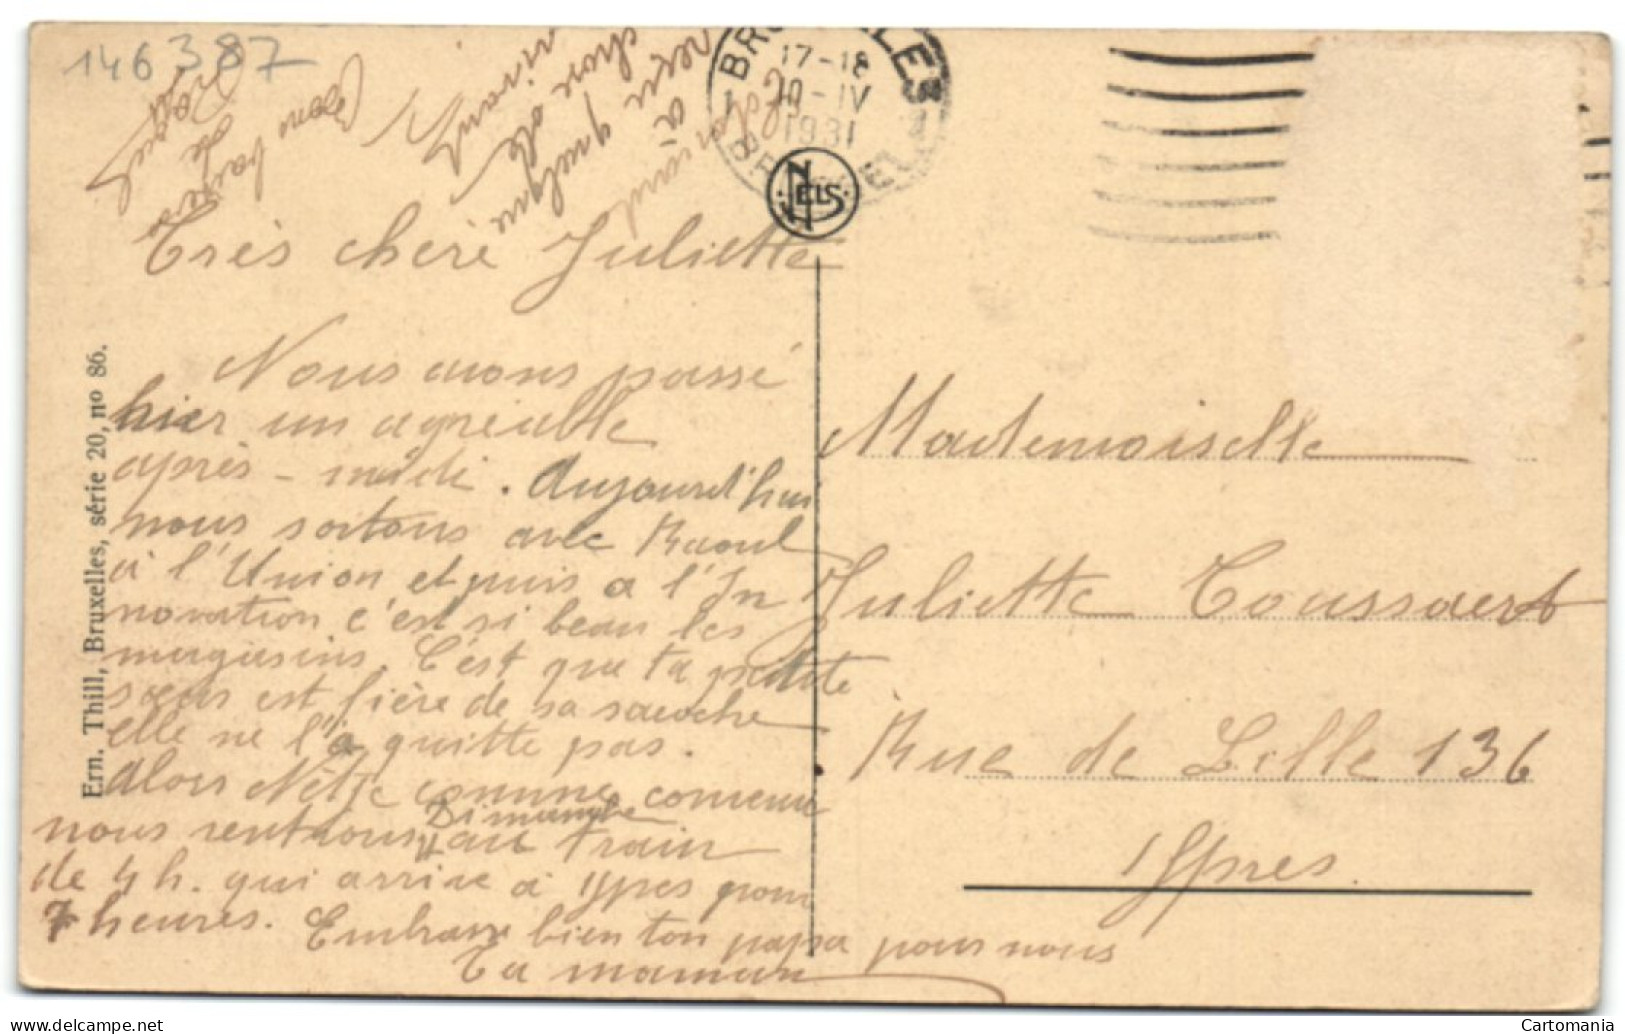 146387
Bons baisers
de
Raoul
à
quelque
chose de
vivant
BRUXELLES
17-18
10-IV
1931
BRUSSEL
NELS
Très chère Juliette
Nous avons passé
hier un agréable
après-midi. Aujourd'hui
nous sortons avec Raoul
à l'Union et puis a l'In
novation c'est si beau les
magasins. C'est que ta petite
sœur est fière de sa sacoche
elle ne l'a quitte pas.
alors comme convenu
nous rentrons Dimanche au train
de 4 h. qui arrive à Ypres pour
7 heures. Embrasse bien ton papa pour nous
Ta maman
Ern. Thill, Bruxelles, série 20, no 86.
Mademoiselle
Juliette Toussaert
Rue de Lille 136
Ypres
Cartomania